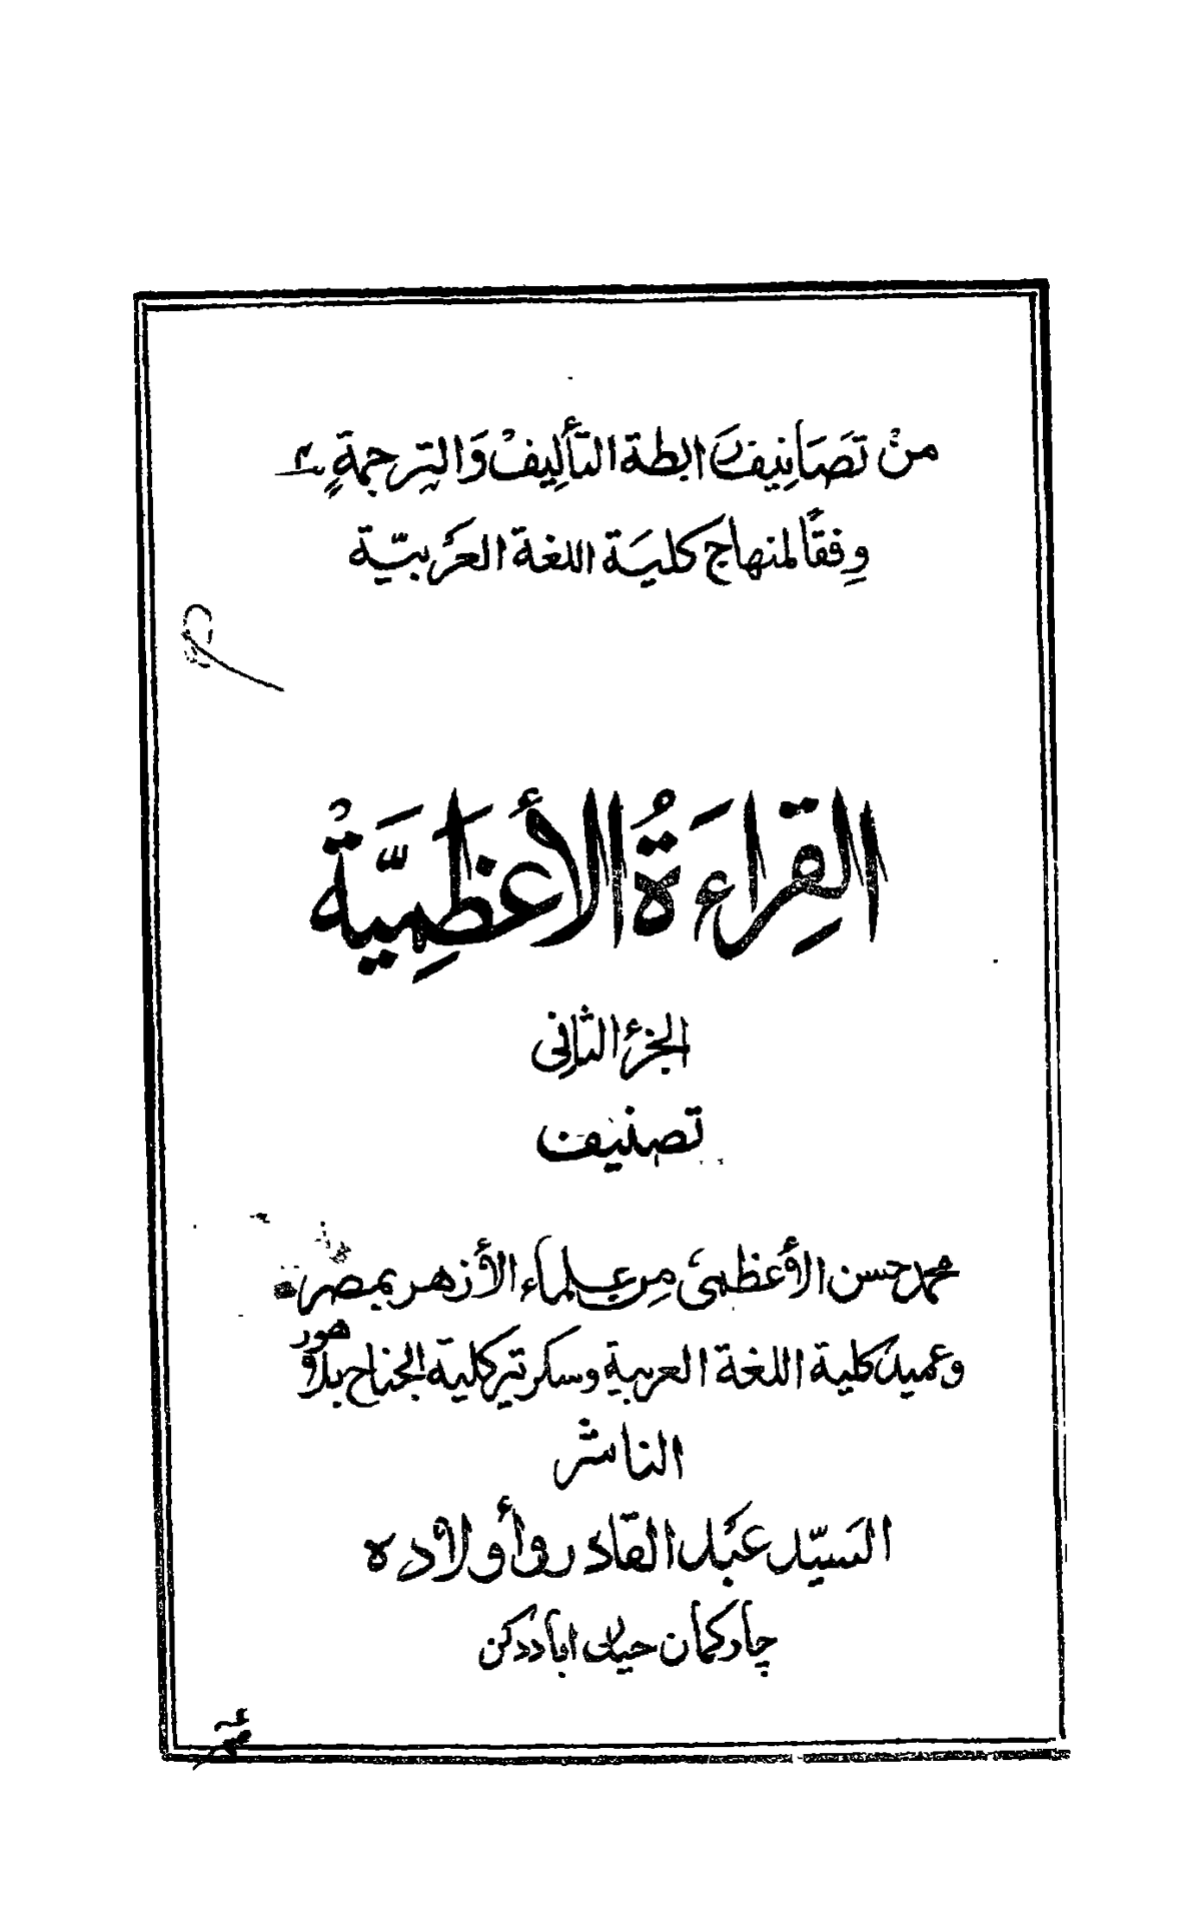 منْ تَصَانِيف رَابطة التأليفْ وَالترجمةِ ٣
وِفقًا لمنهاج كليَة اللغة العَربيّية
القِراءَةُ الأَعْظَمِيَّةْ
الجزءُ الثانِى
تصنيف
محمد حسن الأعظمى من علماء الأزهر بمصر
وعميد كلية اللغة العربية وسكرتير كلية الجناح بلاهور
الناشر
السَيّد عَبد القادر وأولاده
چار كمان حيدر اباد دكن